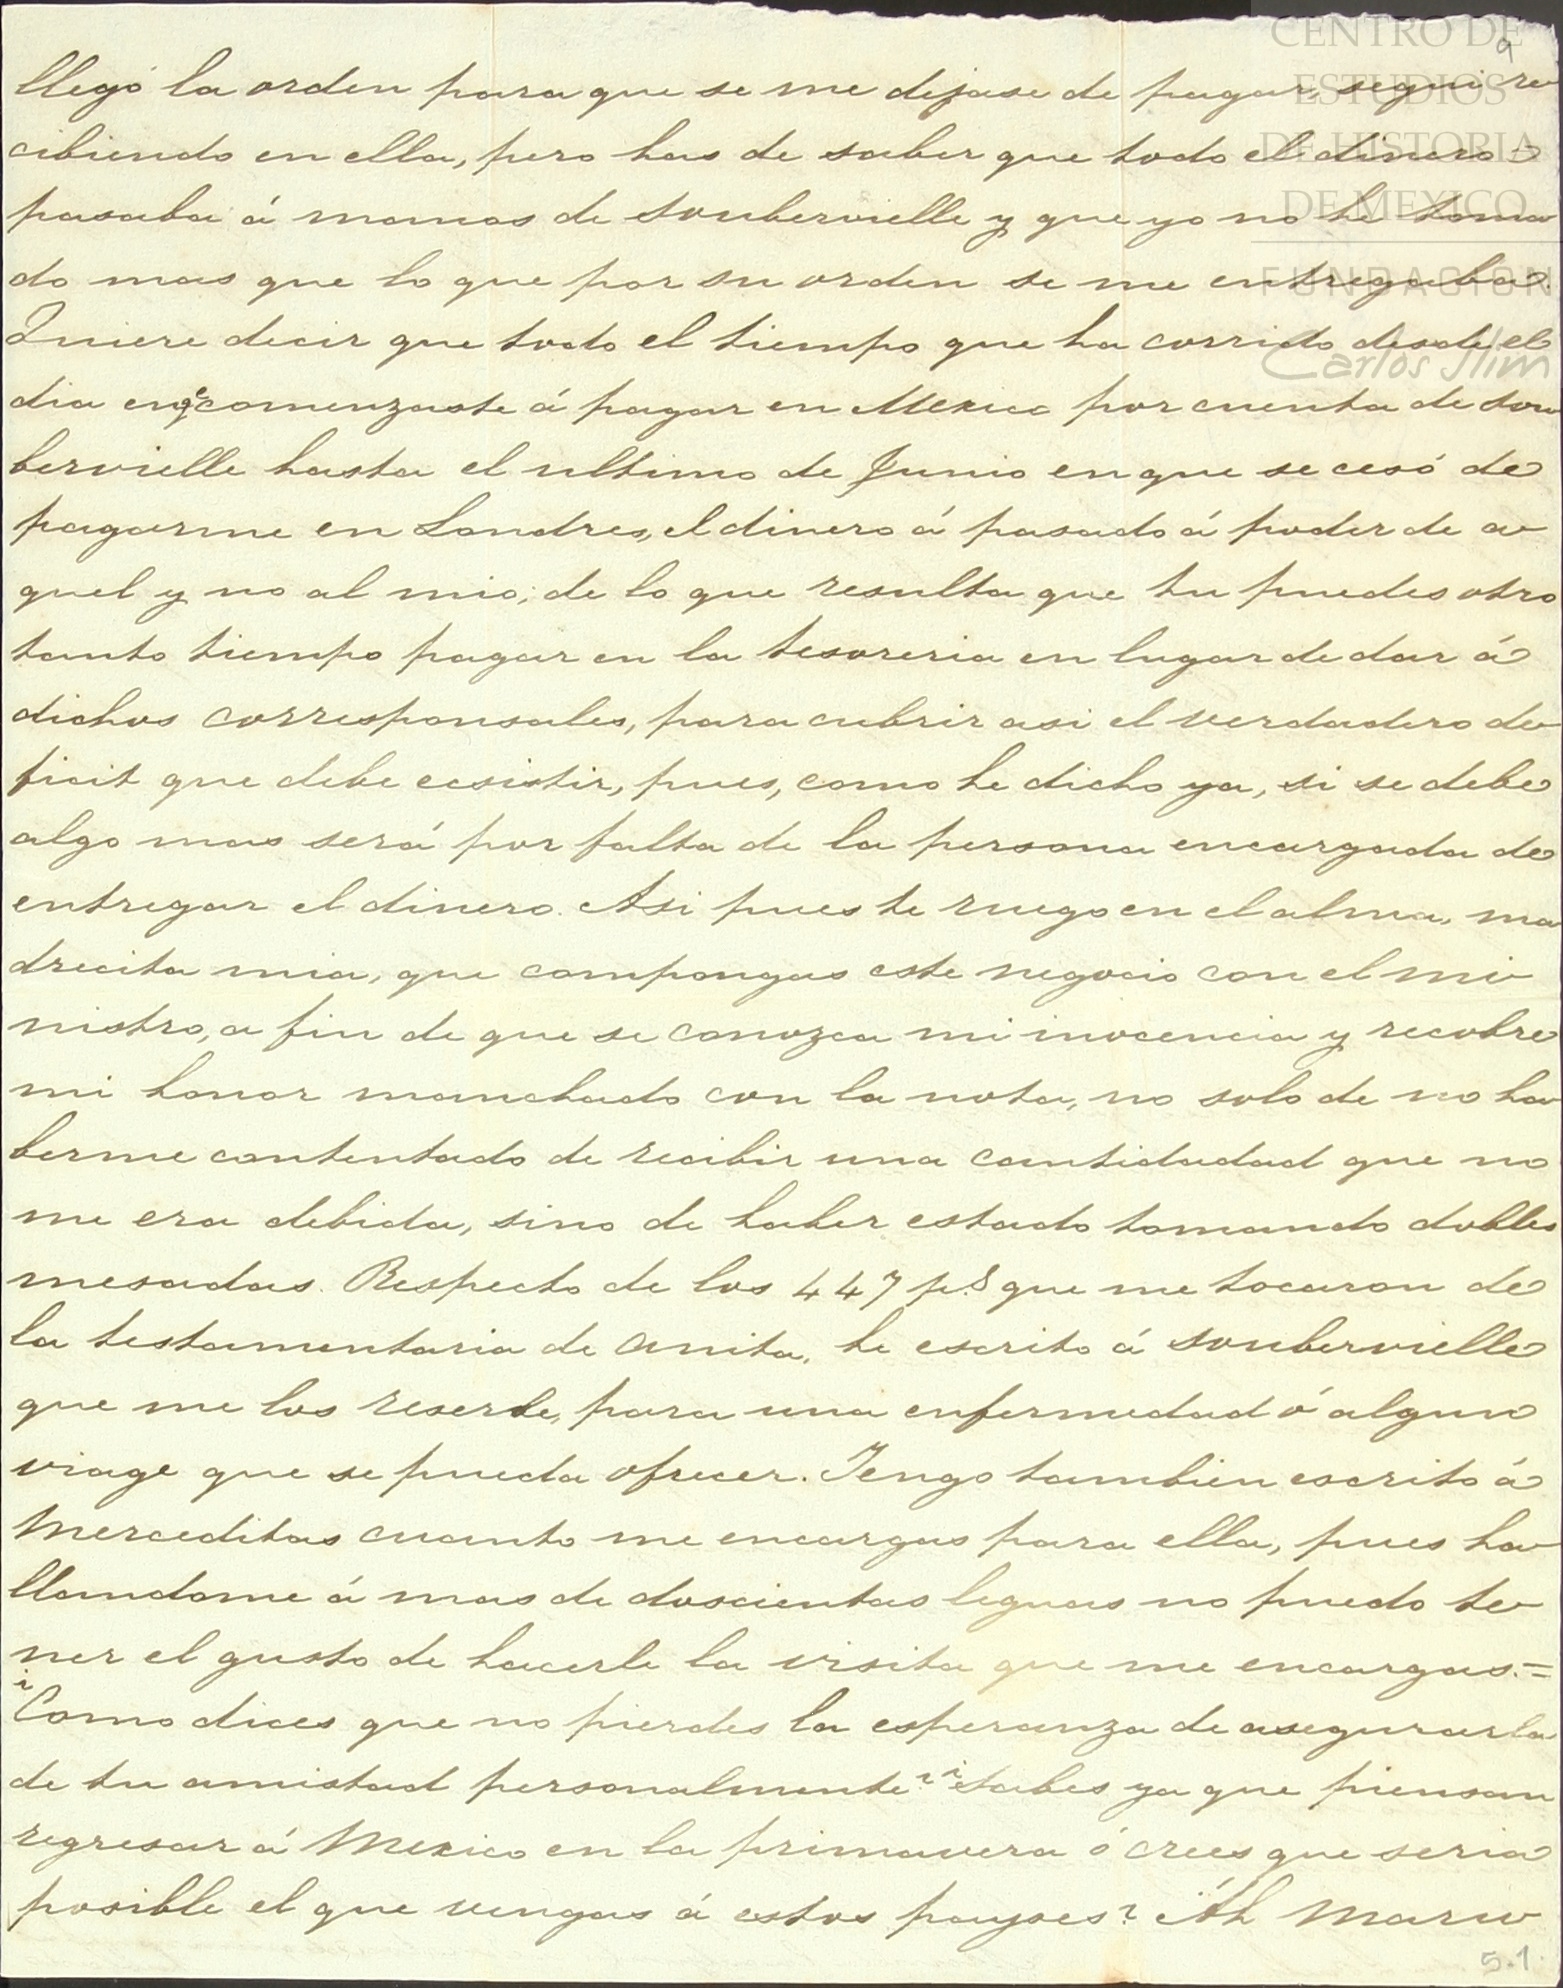 CENTRO DE
ESTUDIOS
DE HISTORIA
DE MEXICO
FUNDACION
Carlos Slim
9
llegó la orden para que se me dejase de pagar, segui re
cibiendo en ella, pero has de saber que todo el dinero
pasaba á manos de Soubervielle y que yo no he toma
do mas que lo que por su orden se me entregaba.
Quiere decir que todo el tiempo que ha corrido desde el
dia en qe comenzaste á pagar en Mexico por cuenta de Sou
bervielle hasta el ultimo de Junio en que se cesó de
pagarme en Londres, el dinero á pasado á poder de a
quel y no al mio; de lo que resulta que tu puedes otro
tanto tiempo pagar en la tesoreria en lugar de dar á
dichos corresponsales, para cubrir asi el verdadero de
ficit que debe ecsistir, pues, como he dicho ya, si se debe
algo mas será por falta de la persona encargada de
entregar el dinero. Asi pues te ruego en el alma, ma
drecita mia, que compongas este negocio con el mi
nistro, a fin de que se conozca mi inocencia y recobre
mi honor manchado con la nota, no solo de no ha
berme contentado de recibir una cantidadad que no
me era debida, sino de haber estado tomando dobles
mesadas. Respecto de los 447 p.s que me tocaron de
la testamentaria de Anita, he escrito á Soubervielle
que me los reserve, para una enfermedad ó algun
viage que se pueda ofrecer. Tengo tambien escrito á
Merceditas cuanto me encargas para ella, pues ha
llandome á mas de doscientas leguas no puedo te
ner el gusto de hacerle la visita que me encargas.=
¿Como dices que no pierdes la esperanza de asegurarla
de tu amistad personalmente? ¿Sabes ya que piensan
regresar á Mexico en la primavera ó crees que seria
posible el que vengas á estos payses? ¡Ah Mari
5.1.